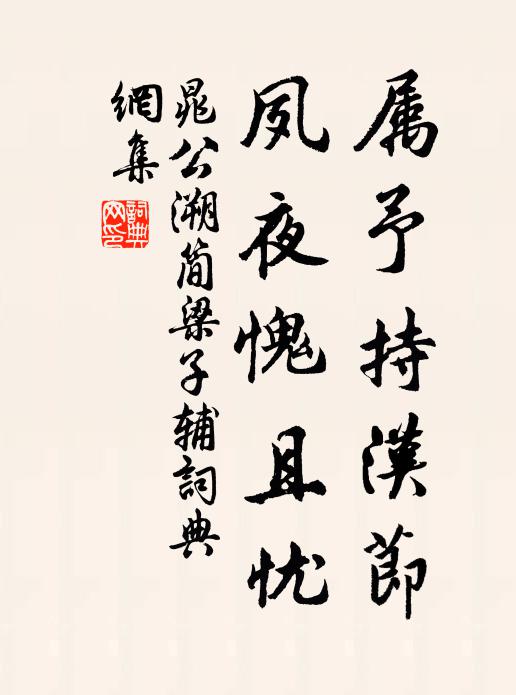 属予持漢節
夙夜愧且忧
晁公溯简梁子辅詞典
網集
詞典網印